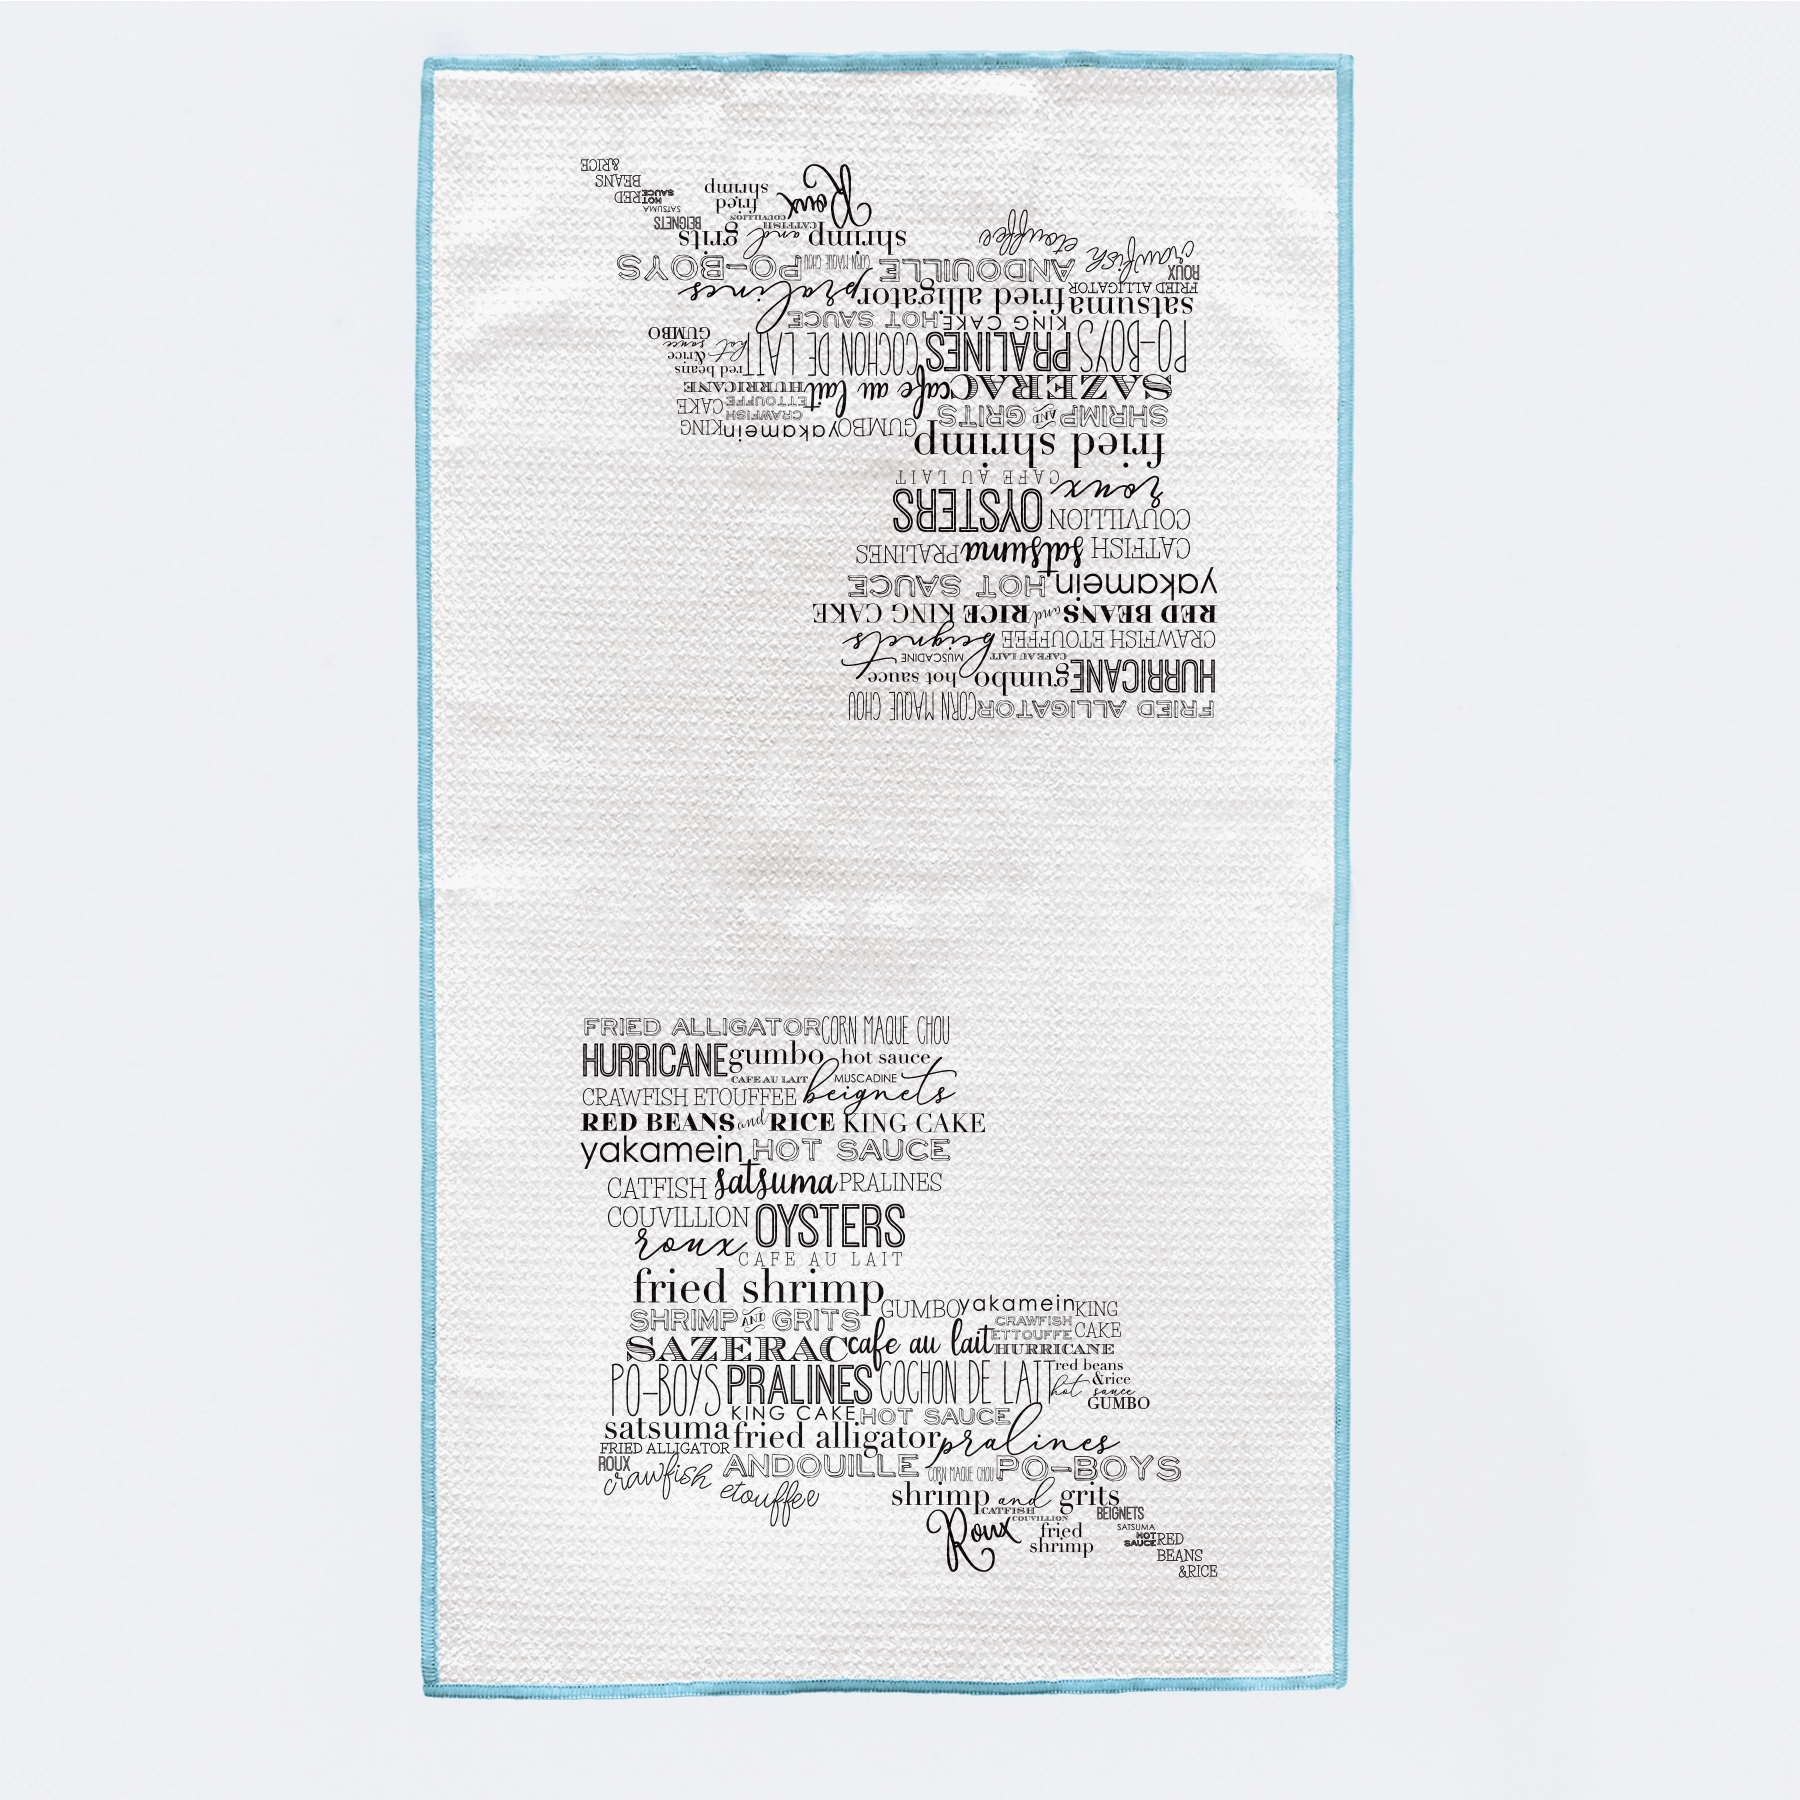 &RICE
BEANS
RED
HOT
SAUCE
SATSUMA
BEIGNETS
fried
shrimp
Roux
COUVILLION
CATFISH
shrimp and grits
crawfish etouffee
ROUX
ANDOUILLE CORN MAQUE CHOU PO-BOYS
FRIED ALLIGATOR
satsuma fried alligator pralines
KING CAKE HOT SAUCE
PO-BOYS PRALINES COCHON DE LAIT
red beans
&rice
hot sauce
GUMBO
SAZERAC cafe au lait HURRICANE
CRAWFISH
ETTOUFFE
SHRIMP AND GRITS
GUMBO yakamein KING
CAKE
fried shrimp
CAFE AU LAIT
roux
COUVILLION OYSTERS
CATFISH satsuma PRALINES
yakamein HOT SAUCE
RED BEANS and RICE KING CAKE
CRAWFISH ETOUFFEE beignets
CAFE AU LAIT MUSCADINE
HURRICANE gumbo hot sauce
FRIED ALLIGATOR CORN MAQUE CHOU
FRIED ALLIGATOR CORN MAQUE CHOU
HURRICANE gumbo hot sauce
CAFE AU LAIT MUSCADINE
CRAWFISH ETOUFFEE beignets
RED BEANS and RICE KING CAKE
yakamein HOT SAUCE
CATFISH satsuma PRALINES
COUVILLION OYSTERS
roux
CAFE AU LAIT
fried shrimp
GUMBO yakamein KING
CAKE
SHRIMP AND GRITS
CRAWFISH
ETTOUFFE
SAZERAC cafe au lait HURRICANE
PO-BOYS PRALINES COCHON DE LAIT
red beans
&rice
hot sauce
GUMBO
KING CAKE HOT SAUCE
satsuma fried alligator pralines
FRIED ALLIGATOR
ROUX
ANDOUILLE CORN MAQUE CHOU PO-BOYS
crawfish etouffee
shrimp and grits
CATFISH
COUVILLION
Roux
fried
shrimp
BEIGNETS
SATSUMA
HOT
SAUCE
RED
BEANS
&RICE